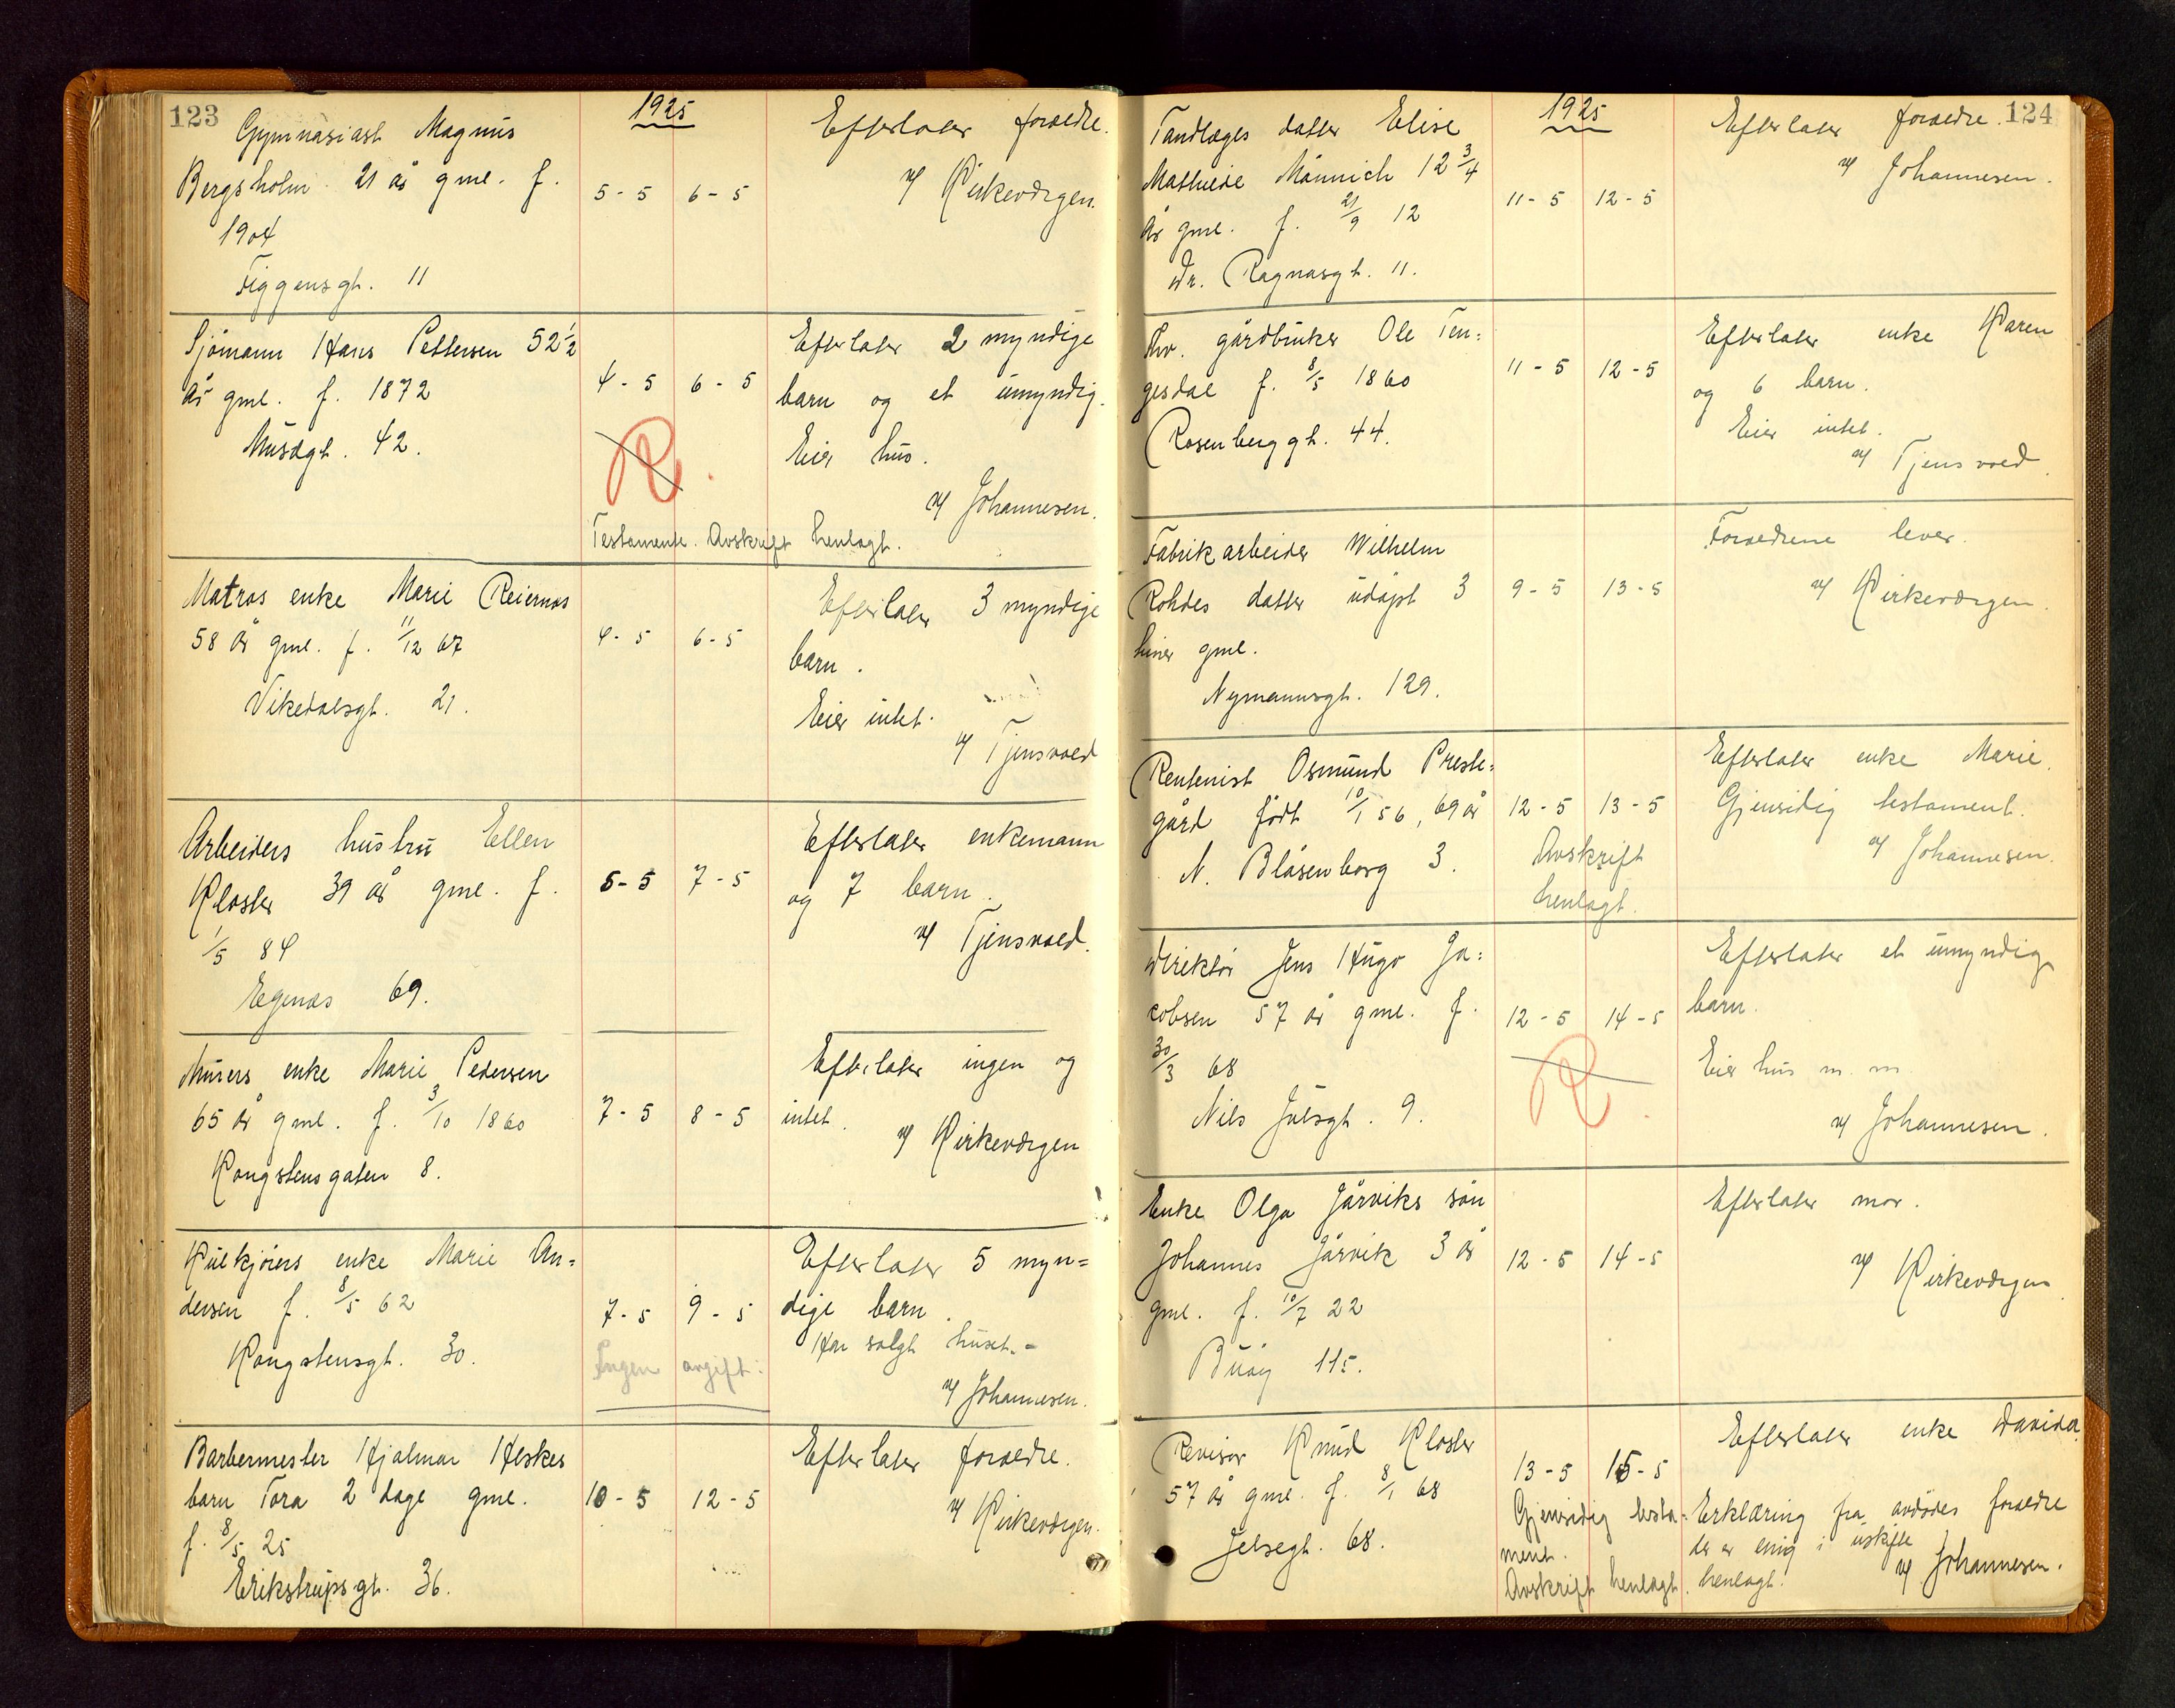 123
1925
Gymnasiast Magnus
Bergsholm 21 år gml. f.
1904
Figgensgt. 11
5-5 6-5
Efterlater forældre.
v/ Kirkeværgen.
Sjømann Hans Pettersen 52½
år gml. f. 1872
Musægt. 42.
4-5 6-5
R.
Efterlater 2 myndige
barn og et umyndig.
Eier hus.
v/ Johannesen.
Testamente. Avskrift henlagt.
Matros enke Marie Reiernæs
58 år gml. f. 11/12 67
Vikedalsgt. 21.
4-5 6-5
Efterlater 3 myndige
barn.
Eier intet.
v/ Tjensvold
Arbeiders hustru Ellen
Kloster 39 år gml. f.
1/5 84
Egenæs 69.
5-5 7-5
Efterlater enkemann
og 7 barn.
v/ Tjensvold.
Murers enke Marie Pedersen
65 år gml. f. 3/10 1860
Kongstensgaten 8.
7-5 8-5
Efterlater ingen og
intet.
v/ Kirkeværgen
Kulkjørers enke Marie An=
dersen f. 8/5 62
Kongstensgt. 30.
7-5 9-5
Ingen avgift.
Efterlater 5 myn=
dige barn.
Har solgt huset.-
v/ Johannesen.
Barbermester Hjalmar Heskes
barn Tora 2 dage gml.
f. 8/5 25
Erikstrupsgt. 36.
10-5 12-5
Efterlater forældre.
v/ Kirkeværgen.
124
1925
Tandlæges datter Elise
Mathilde Männich 12¾
år gml. f. 21/9 12
Dr. Ragnasgt. 11.
11-5 12-5
Efterlater forældre.
v/ Johannesen.
Fhv. gårdbruker Ole Ten=
gesdal f. 8/5 1860
Rosenberggt. 44.
11-5 12-5
Efterlater enke Karen
og 6 barn.
Eier intet.
v/ Tjensvold.
Fabrikarbeider Wilhelm
Rohdes datter udøpt 3
timer gml.
Nymannsgt. 129.
9-5 13-5
Forældrene lever.
v/ Kirkeværgen.
Rentenist Osmund Preste=
gård født 10/1 56, 69 år
N. Blåsenborg 3.
12-5 13-5
Avskrift
henlagt.
Efterlater enke Marie.
Gjensidig testament.
v/ Johannesen.
Direktør Jens Hugo Ja=
cobsen 57 år gml. f.
30/3 68
Nils Julsgt. 9.
12-5 14-5
R.
Efterlater et umyndig
barn.
Eier hus m. m.
v/ Johannesen.
Enke Olga Jårviks søn
Johannes Jårvik 3 år
gml. f. 10/7 22
Buøy 115.
12-5 14-5
Efterlater mor.
v/ Kirkeværgen
Revisor Knud Kloster
57 år gml. f. 8/1 68
Jelsegt. 68.
13-5 15-5
Gjensidig testa-
ment.
Avskrift henlagt.
Efterlater enke Davida.
Erklæring fra avdødes forældre
der er enig i uskifte
henlagt.
v/ Johannesen.